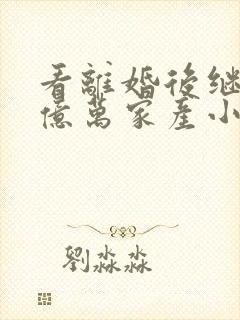 看離婚後继
億萬家產小
劉淼淼